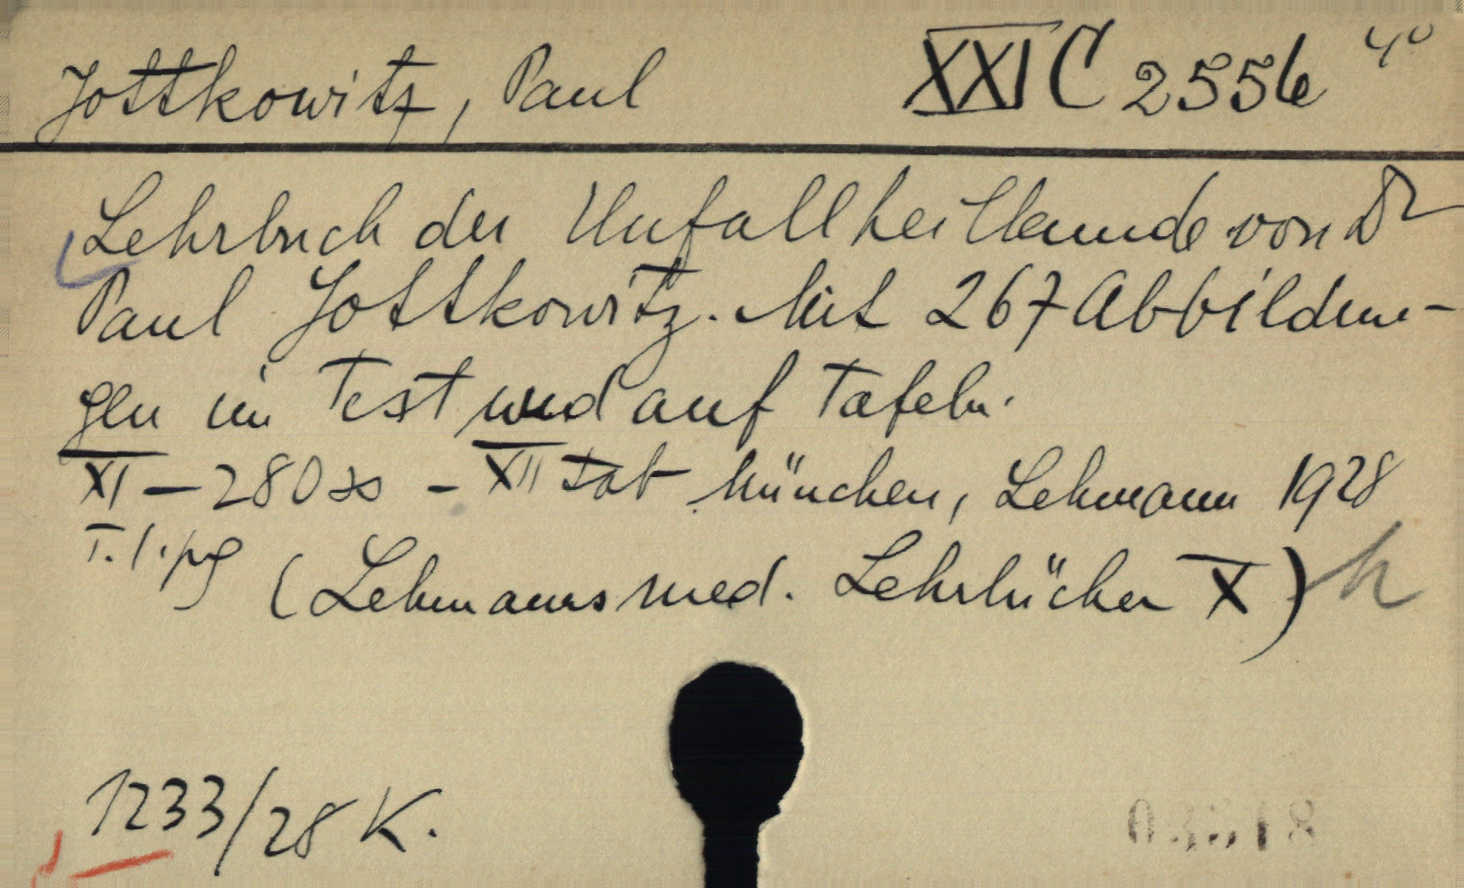 Jottkowitz, Paul XXI C 2556 4°
Lehrbuch der Unfallheilkunde von Dr
Paul Jottkowitz. Mit 267 Abbildun-
gen im Text und auf Tafeln.
XI - 280 ss - XII tab München, Lehmann 1928
(Lehmanns med. Lehrbücher X)
1233/28 K.